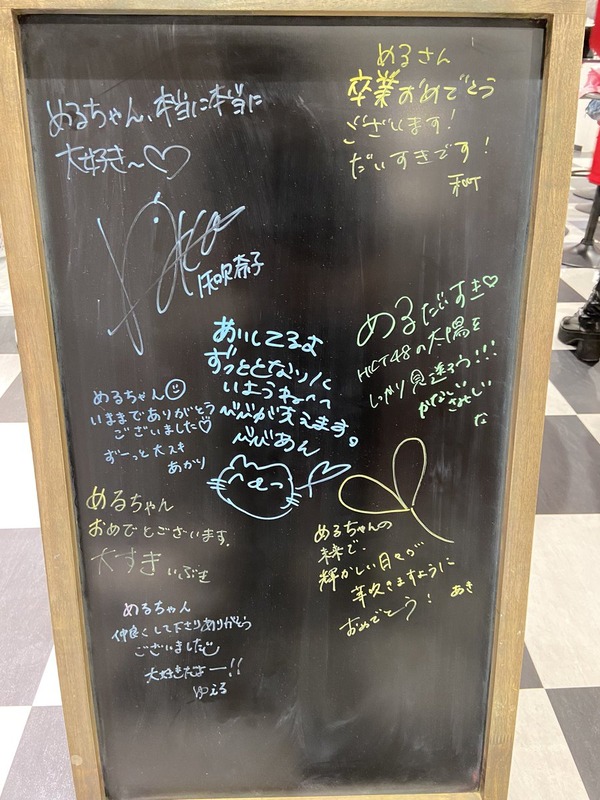 めるちゃん、本当に本当に
大好き〜♡
矢吹奈子
めるさん
卒業おめでとう
ございます!
だいすきです!
あいしてるよ
ずっととなりに
いようねへへ
べびが支えます。
べびあん
めるだいすき♡
HKT48の太陽を
しっかり見送ろう!!!
さみしい
な
めるちゃん☺
いままでありがとう
ございました♡
ずーっと大スキ
あかり
めるちゃん
おめでとございます。
大すき いぶき
めるちゃんの
未来で、
輝かしい日々が
芽吹きますように
おめでとう! あき
めるちゃん
仲良くして下さりありがとう
ございました
大好きだよー!!
ゆえる